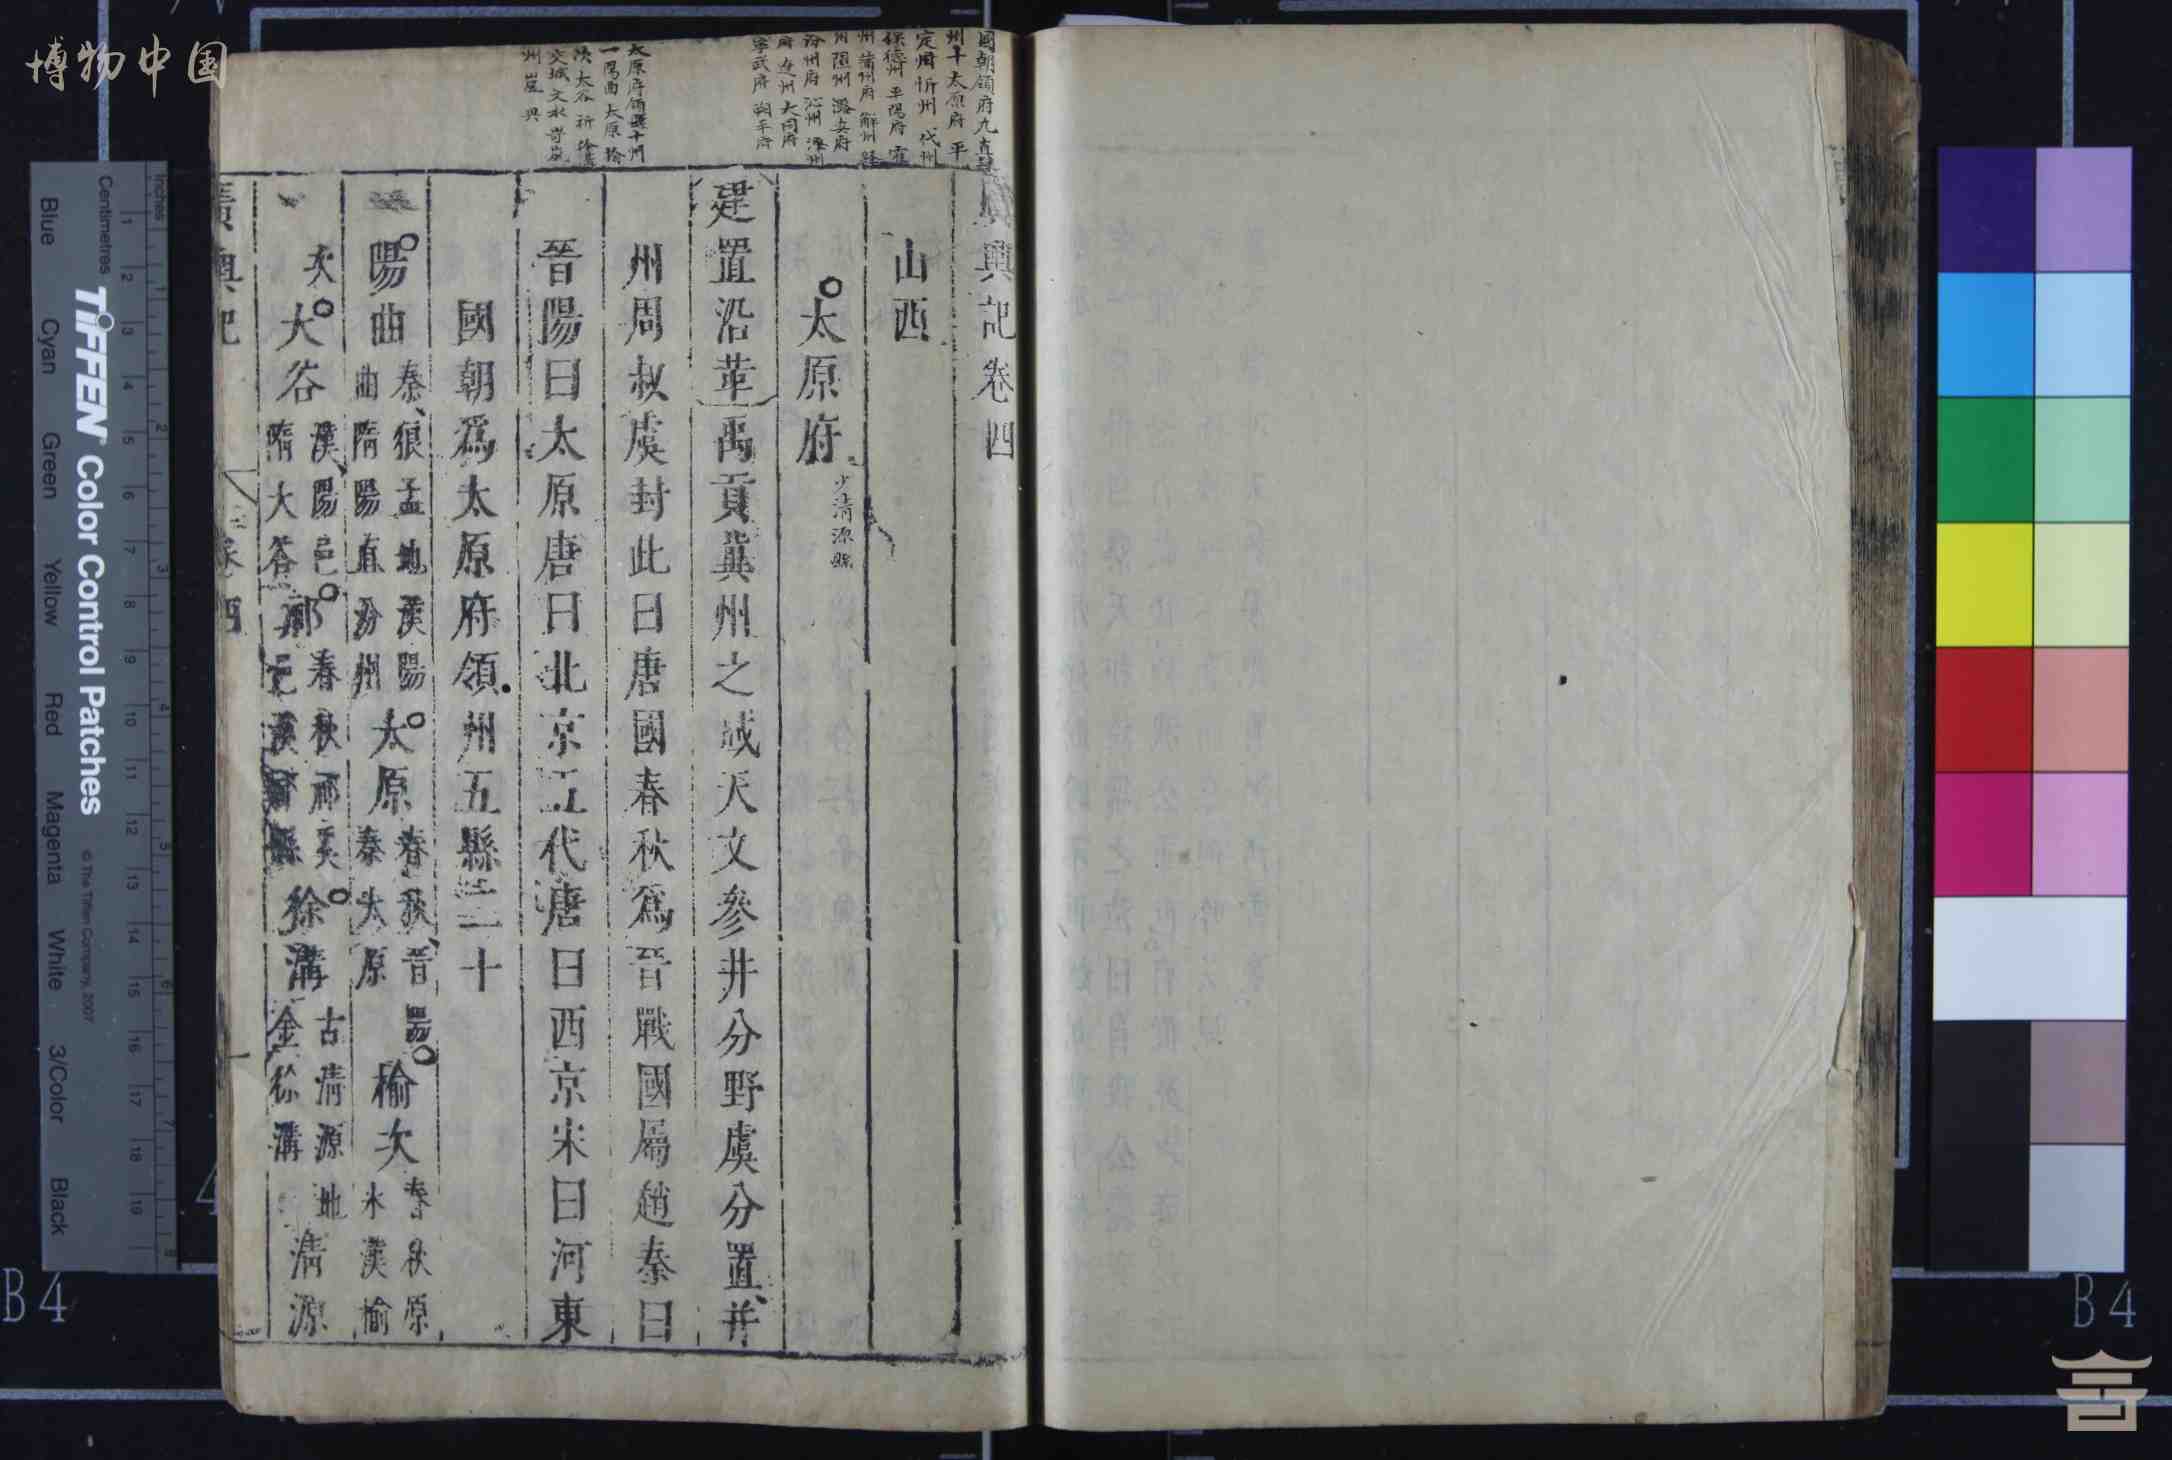 博物中国
國朝領府九直隸
州十太原府 平
定州 忻州 代州
保德州 平陽府 霍
州 蒲州府 解州 絳
州 隰州 潞安府
汾州府 沁州 澤州
府 遼州 大同府
寧武府 朔平府
太原府領縣十州
一陽曲 太原 榆
次 太谷 祁 徐溝
交城 文水 岢嵐
州 嵐 興
廣輿記卷四
山西
太原府
少清源縣
建置沿革禹貢冀州之域天文參井分野虞分置并
州周叔虞封此曰唐國春秋爲晉戰國屬趙秦曰
晉陽曰太原唐曰北京五代唐曰西京宋曰河東
國朝爲太原府領州五縣二十
陽曲秦狼孟地漢陽曲隋陽直汾州太原春秋晉陽秦太原榆次春秋原水漢榆
次大谷漢陽邑隋大谷祁春秋祁奚邑漢爲縣徐溝古清源地金徐溝清源
廣輿記 卷四
Inches
Centimetres
1 2 3 4 5 6 7 8
1 2 3 4 5 6 7 8 9 10 11 12 13 14 15 16 17 18 19
TIFFEN Color Control Patches
© The Tiffen Company, 2007
Blue Cyan Green Yellow Red Magenta White 3/Color Black
B4
B4